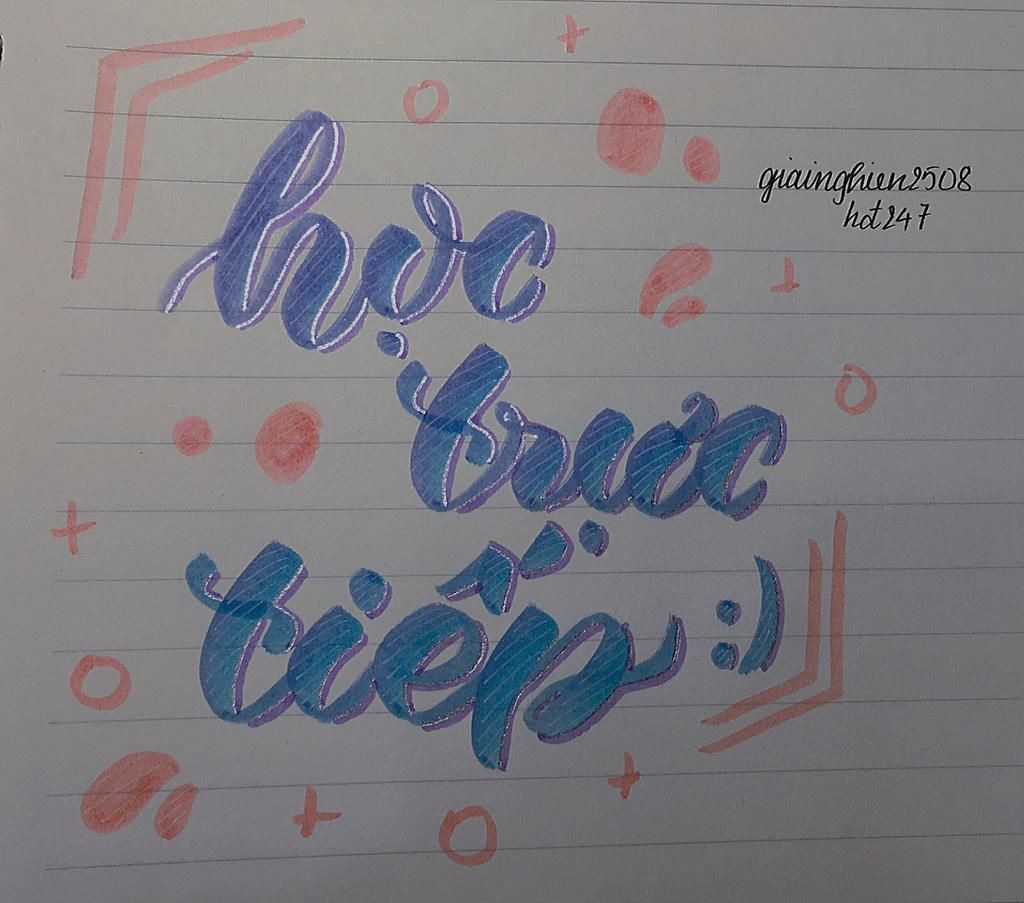 học
giainghien2508
hot247
trực
tiếp :)